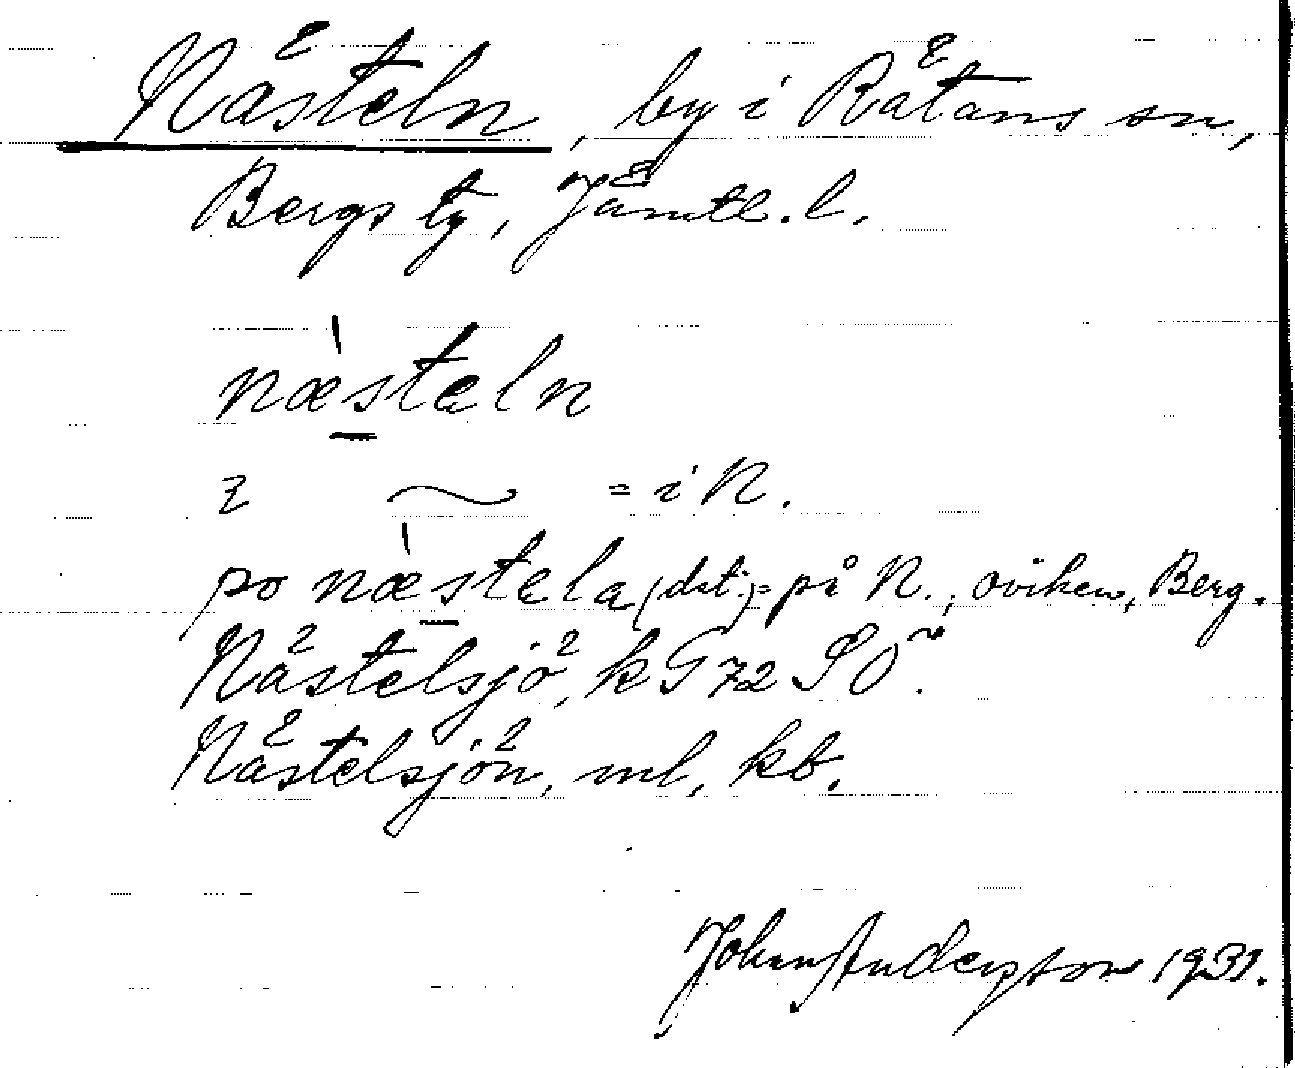 Nästeln, by i Rätans sn,
Bergs tg, Jämtl. l.
næ̀steln
i ~ = i N.
po næ̀stela (dat.) = på N., oviken, Berg.
Nästelsjö, k G 72 SO
Nästelsjön, ml, kb.
Johan Anderzson 1931.